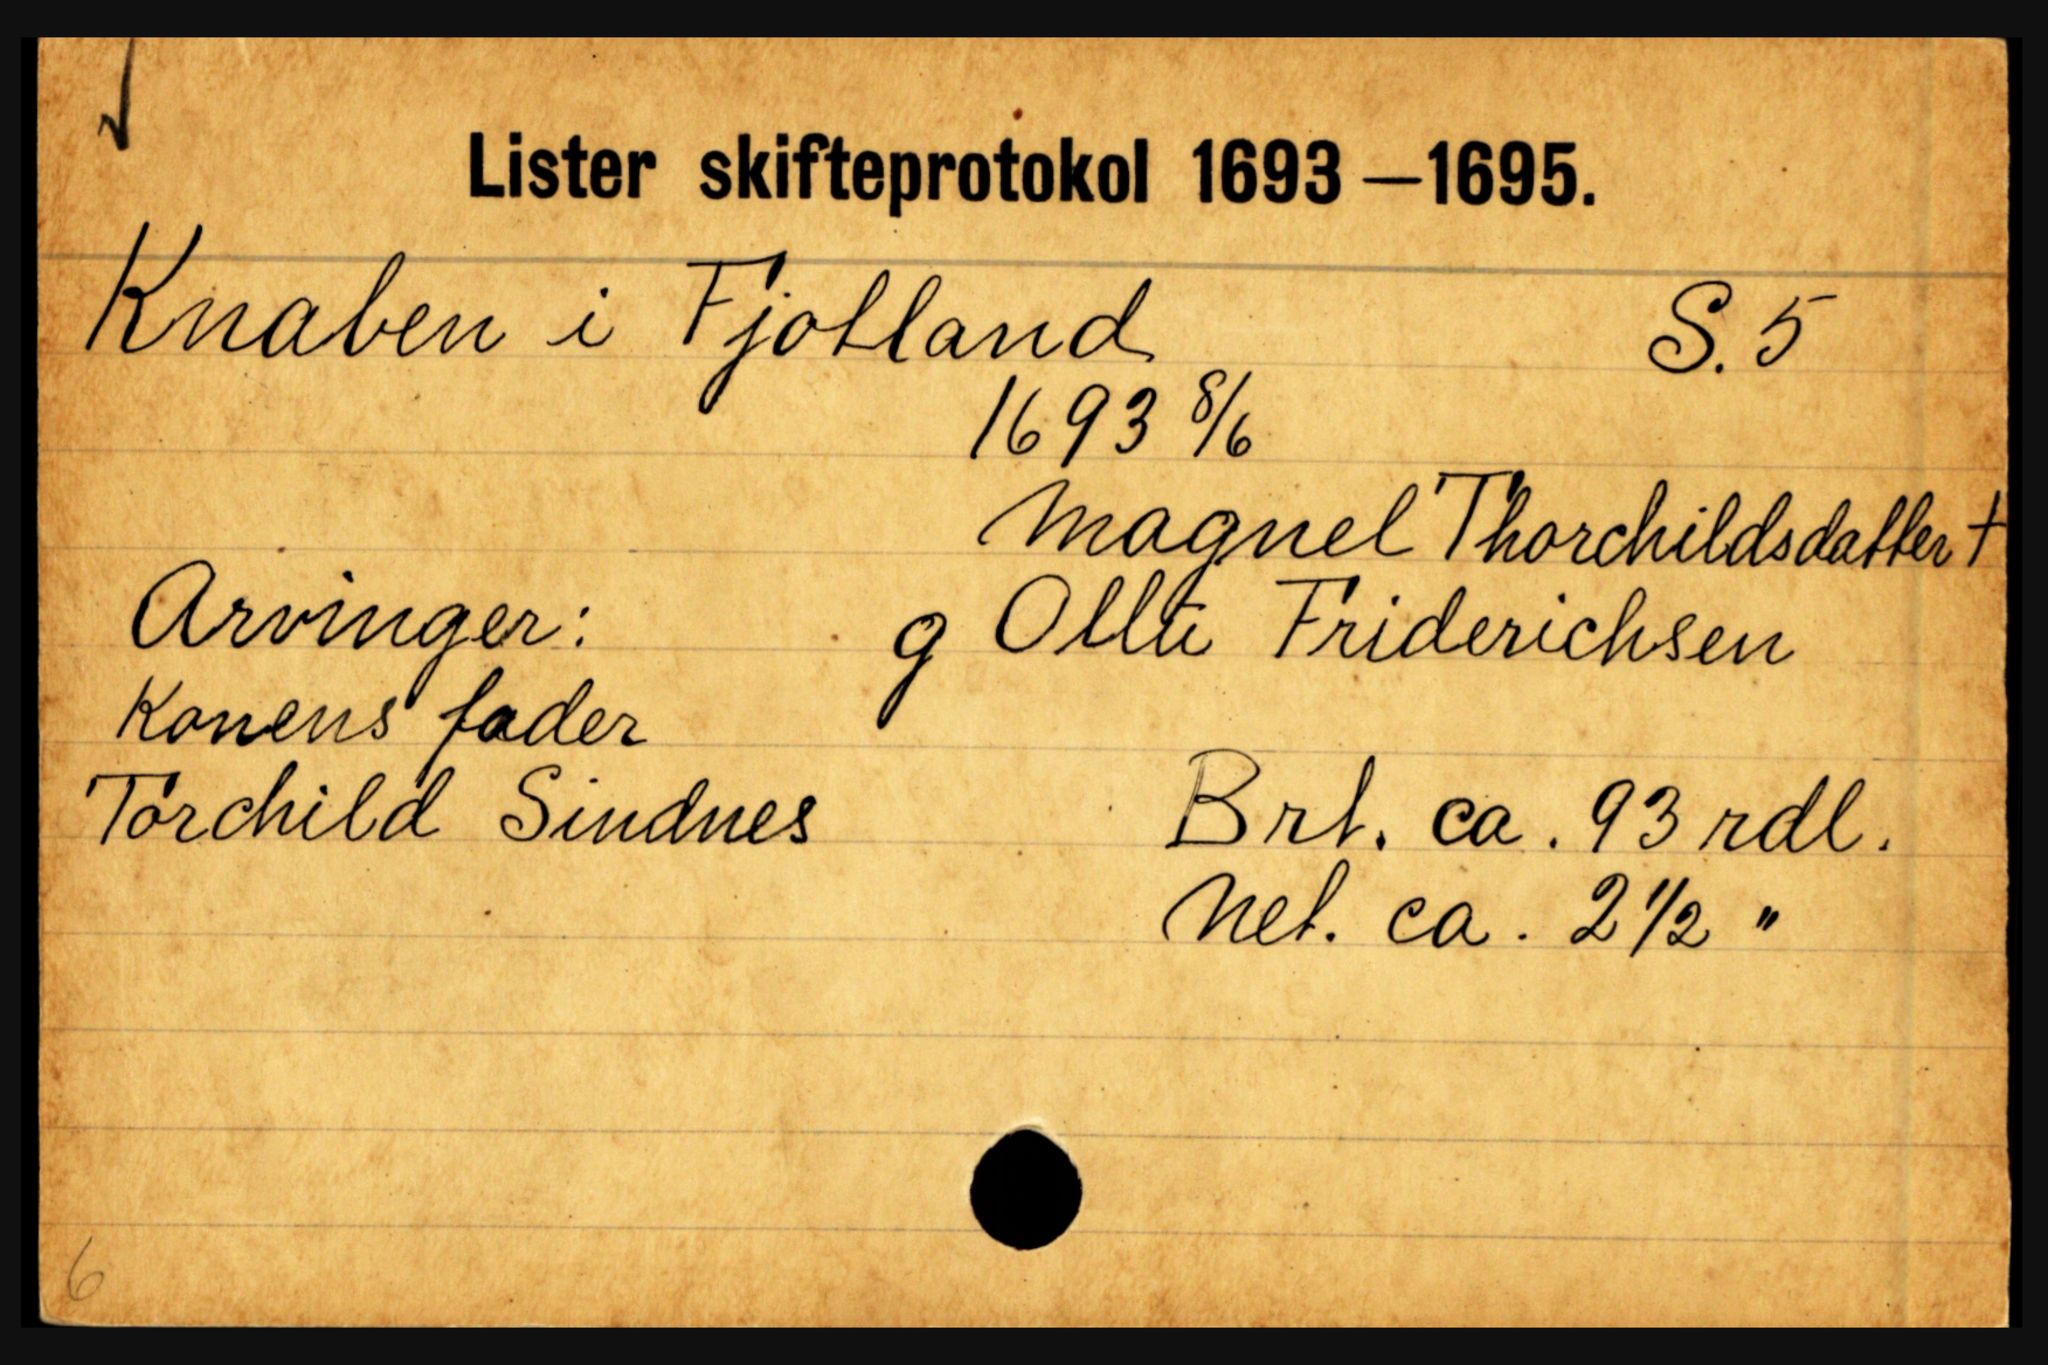 Lister skifteprotokol 1693–1695.
Knaben i Fjotland S. 5
1693 8/6
Magnel Thorchildsdatter †
Arvinger: g Olle Friderichsen
Konens fader
Torchild Sindnes Brt. ca. 93 rdl.
Net. ca. 2 1/2 "
6